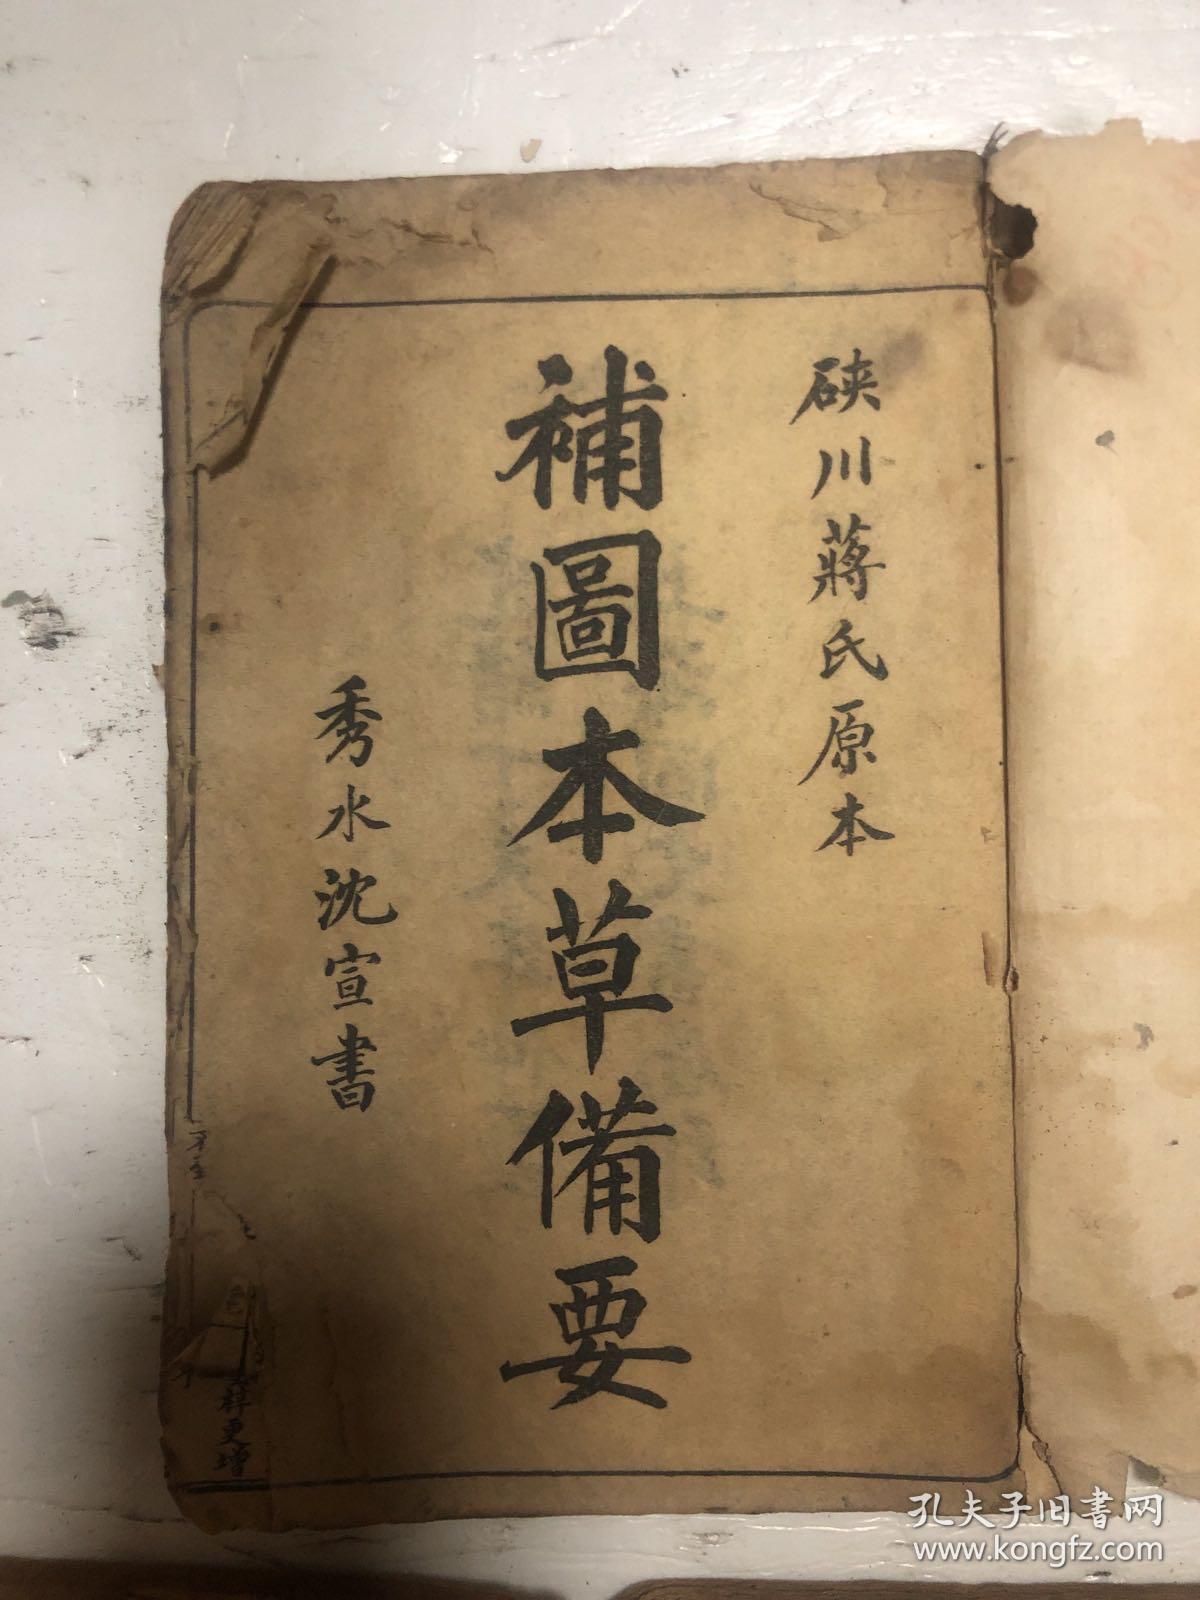 硤川蔣氏原本
補圖本草備要
秀水沈宣書
梓更增
孔夫子旧书网
www.kongfz.com